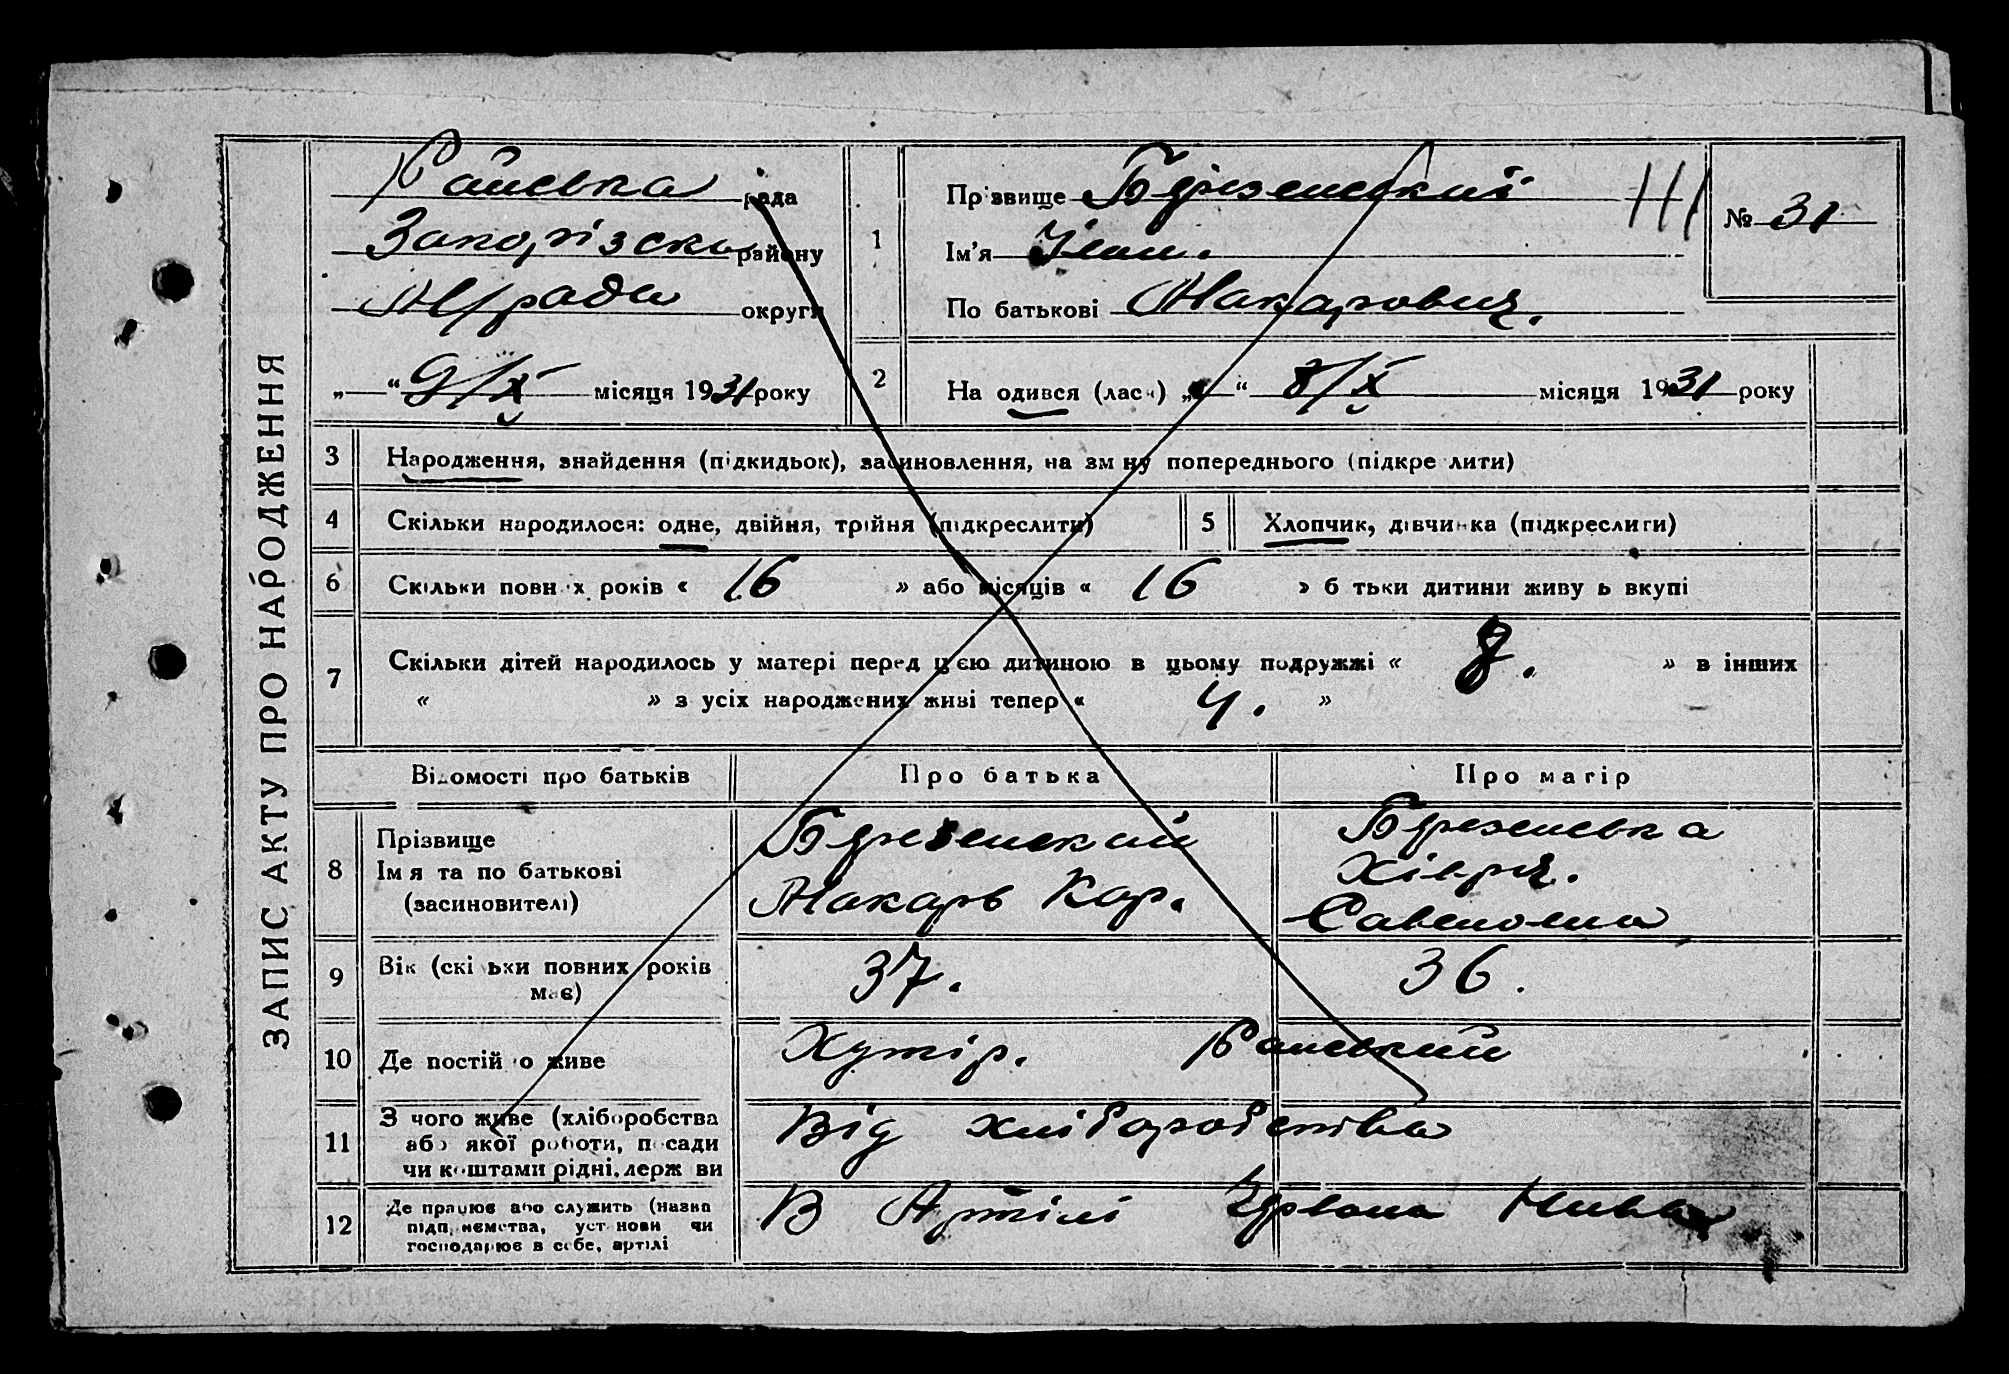 ЗАПИС АКТУ ПРО НАРОДЖЕННЯ
Раиевка рада
району
округи
„ “ 9/X місяця 1931 року
1
Прізвище Березенский
Ім’я Іван.
По батькові Макарович.
№ 31
2
На одився (лась) „ “ 8/X місяця 1931 року
3 Народження, знайдення (підкидьок), засиновлення, на зм ну попереднього (підкре лити)
4 Скільки народилося: одне, двійня, трійня (підкреслити)
5 Хлопчик, дівчинка (підкреслити)
6 Скільки повн х років « 16 » або місяців « 16 » б тьки дитини живу ь вкупі
7 Скільки дітей народилось у матері перед цією дитиною в цьому подружжі « 8. » в інших
« » з усіх народжених живі тепер « 4. »
Відомості про батьків Про батька Про матір
8 Прізвище
Ім я та по батькові
(засиновителі)
Березенский
Макарь Кар.
Березенська
Хівря.
9 Вік (скі ьки повних років
має)
37. 36.
10 Де постій о живе Хутір. Раиевкий
11 З чого живе (хліборобства
або якої роботи, посади
чи коштами рідні. держ ви
Від хліборобства
12 Де працює або служить (назва
підп, иємства, уст нови чи
господарює в себе, артілі
В Артілі Червона Нива